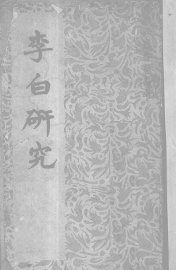 李白研究